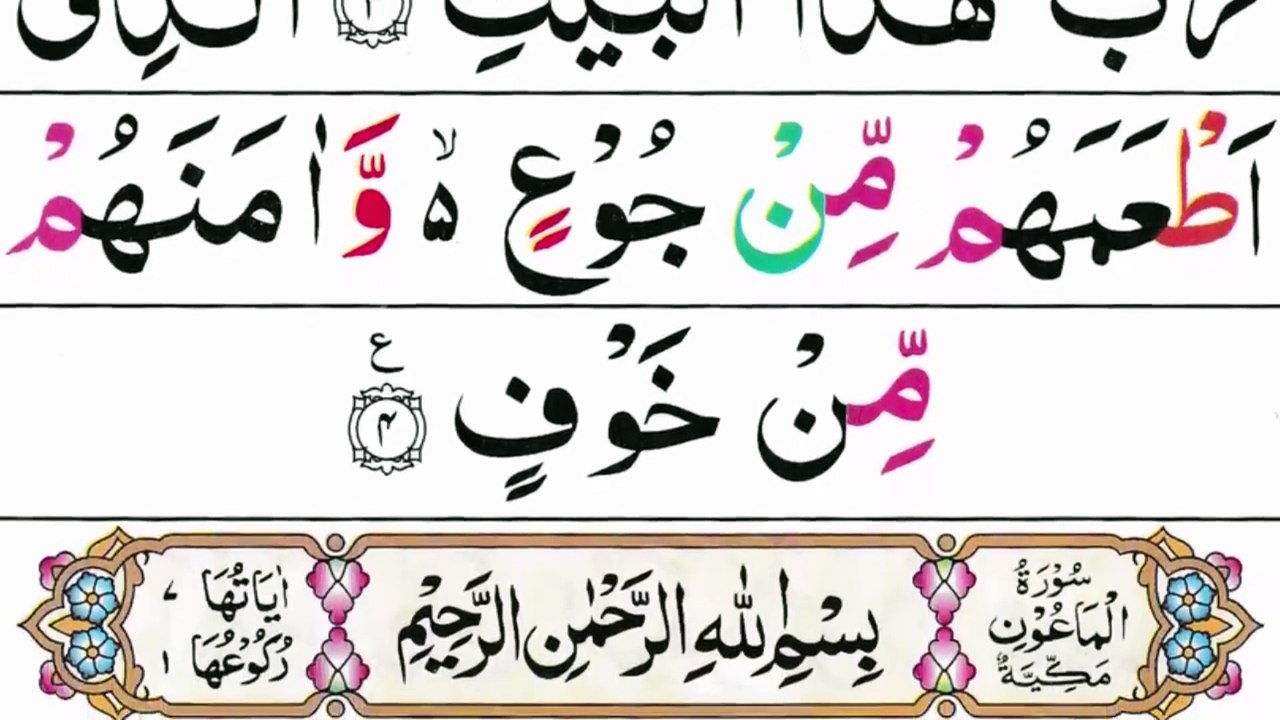 رَبَّ هٰذَا الْبَيْتِ ۝۳ الَّذِیْۤ
اَطْعَمَهُمْ مِّنْ جُوْعٍ ۙ۵ وَّاٰمَنَهُمْ
مِّنْ خَوْفٍ ۝۴ ع
سُوْرَةُ الْمَاعُوْنِ مَكِّيَّةٌ
بِسْمِ اللّٰهِ الرَّحْمٰنِ الرَّحِيْمِ
اٰيَاتُهَا ٧
رُكُوْعُهَا ١